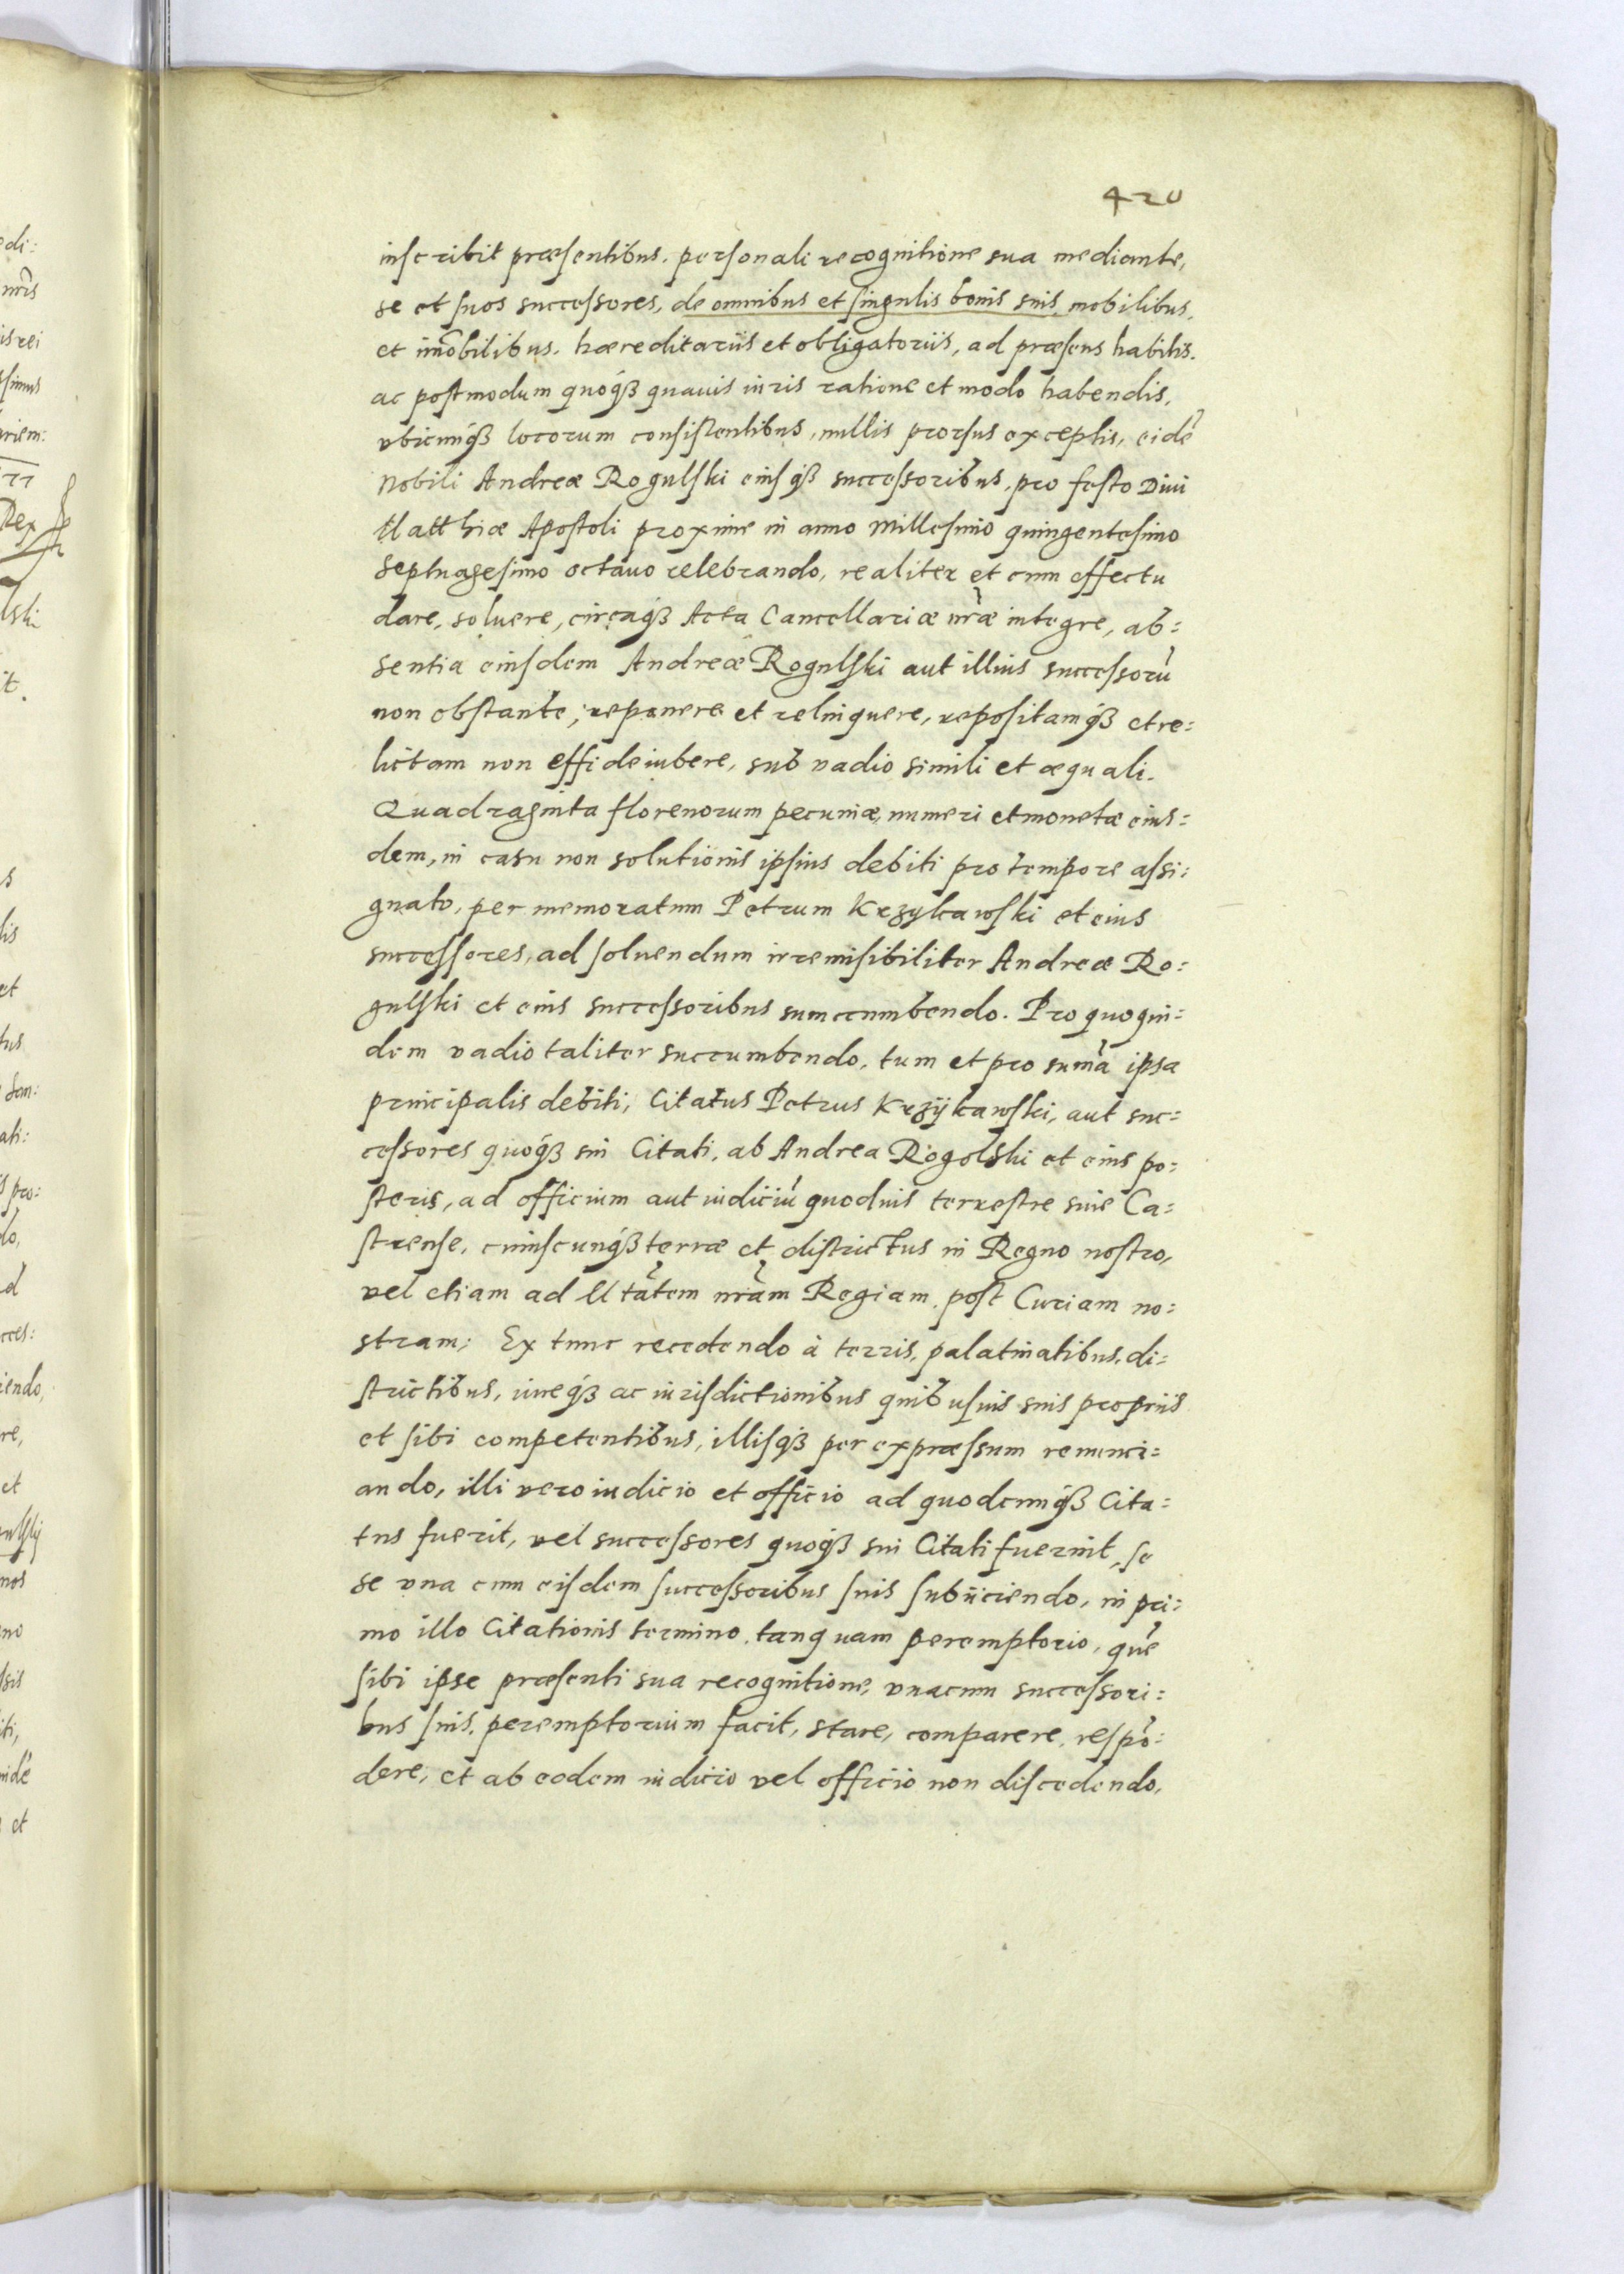 420
inscribit præsentibus, personali recognitione sua mediante,
se et suos successores, de omnibus et singulis bonis suis mobilibus,
et im̃obilibus, hæreditariis et obligatoriis, ad præsens habitis,
ac postmodum quoqȝ quauis iuris ratione et modo habendis,
vbicunqȝ locorum consistentibus, nullis prorsus exceptis, eidẽ
Nobili Andreæ Rogulski eiusqȝ successoribus, pro festo Diui
Matthiæ Apostoli proxime in anno Millesimo quingentesimo
Septuagesimo octauo celebrando, realiter et cum effectu
dare, soluere, circaqȝ Acta Cancellariæ nr̃æ integre, ab:
sentia eiusdem Andreæ Rogulski aut illius successorũ
non obstante, reponere et relinquere, repositamqȝ et re:
lictam non effideiubere, sub vadio simili et æquali.
Quadraginta florenorum pecuniæ, numeri et monetæ eius:
dem, in casu non solutionis ipsius debiti pro tempore assi:
gnato, per memoratum Petrum Krzykawski et eius
successores, ad soluendum irremisibiliter Andreæ Ro:
gulski et eius successoribus sumccumbendo. Pro quo qui:
dem vadio taliter succumbendo, tum et pro sum̃a ipsa
principalis debiti, Citatus Petrus Krzÿkawski, aut suc:
cessores quoqȝ sui Citati, ab Andrea Rogolski et eius po:
steris, ad officium aut iudiciũ quoduis terrestre siue Ca:
strense, cuiuscunqȝ terræ et districtus in Regno nostro,
vel etiam ad Mtãtem nrãm Regiam, post Curiam no:
stram: Ex tunc recedendo à terris, palatinatibus, di:
strictibus, iureqȝ ac iurisdictionibus quibusuis suis propriis
et sibi competentibus, illisqȝ per expræssum renunci:
ando, illi vero iudicio et officio ad quodcunqȝ Cita:
tus fuerit, vel successores quoqȝ sui Citati fuerint, se
se vna cum eisdem successoribus suis subiiciendo, in pri:
mo illo Citationis termino, tanquam peremptorio, quẽ
sibi ipse præsenti sua recognitione, vnacum successori:
bus suis, peremptorium facit, stare, comparere, respõ:
dere, et ab eodem iudicio vel officio non discedendo,